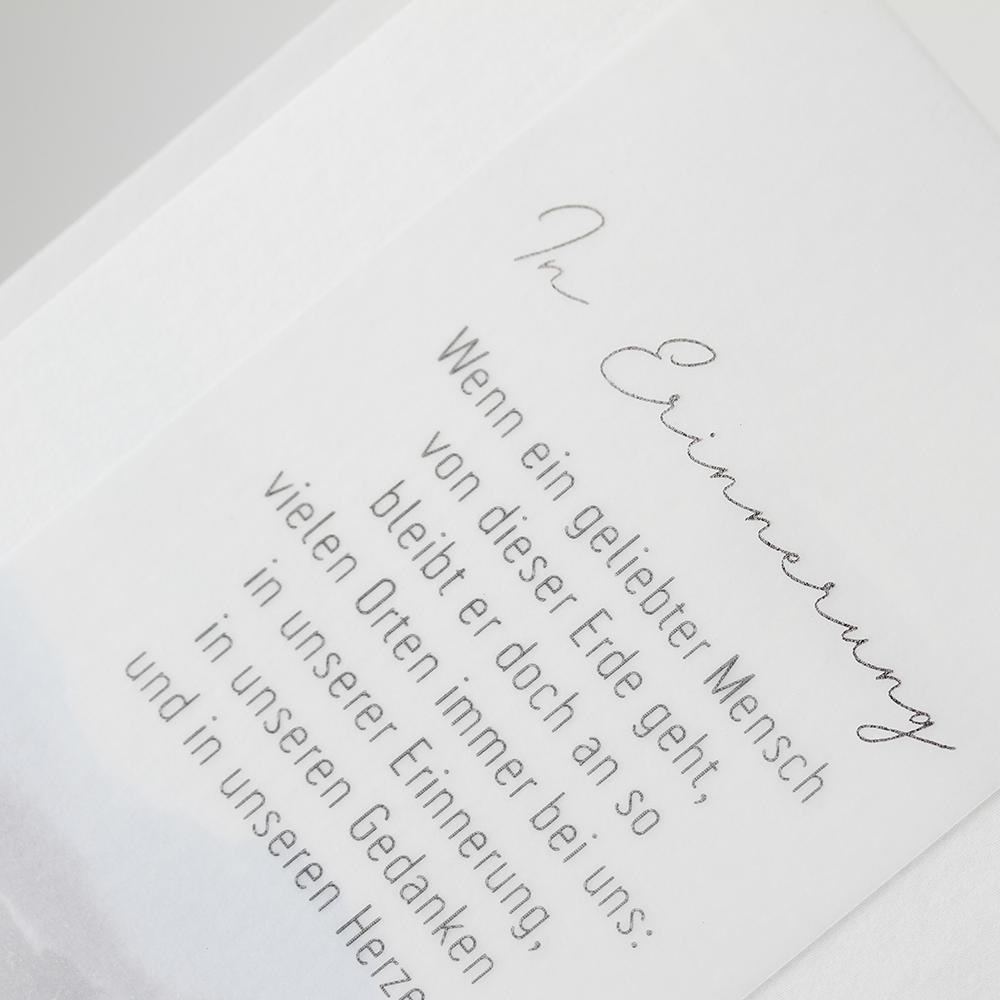 In Erinnerung
Wenn ein geliebter Mensch
von dieser Erde geht,
bleibt er doch an so
vielen Orten immer bei uns:
in unserer Erinnerung,
in unseren Gedanken
und in unseren Herze